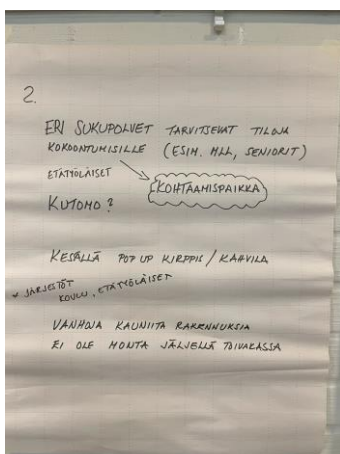 2.
ERI SUKUPOLVET TARVITSEVAT TILOJA
KOKOONTUMISILLE (ESIM. MLL, SENIORIT)
ETÄTYÖLÄISET
KOHTAAMISPAIKKA
KUTOMO?
KESÄLLÄ POP UP KIRPPIS / KAHVILA
JÄRJESTÖT
KOULU, ETÄTYÖLÄISET
VANHOJA KAUNIITA RAKENNUKSIA
EI OLE MONTA JÄLJELLÄ TOIVAKASSA